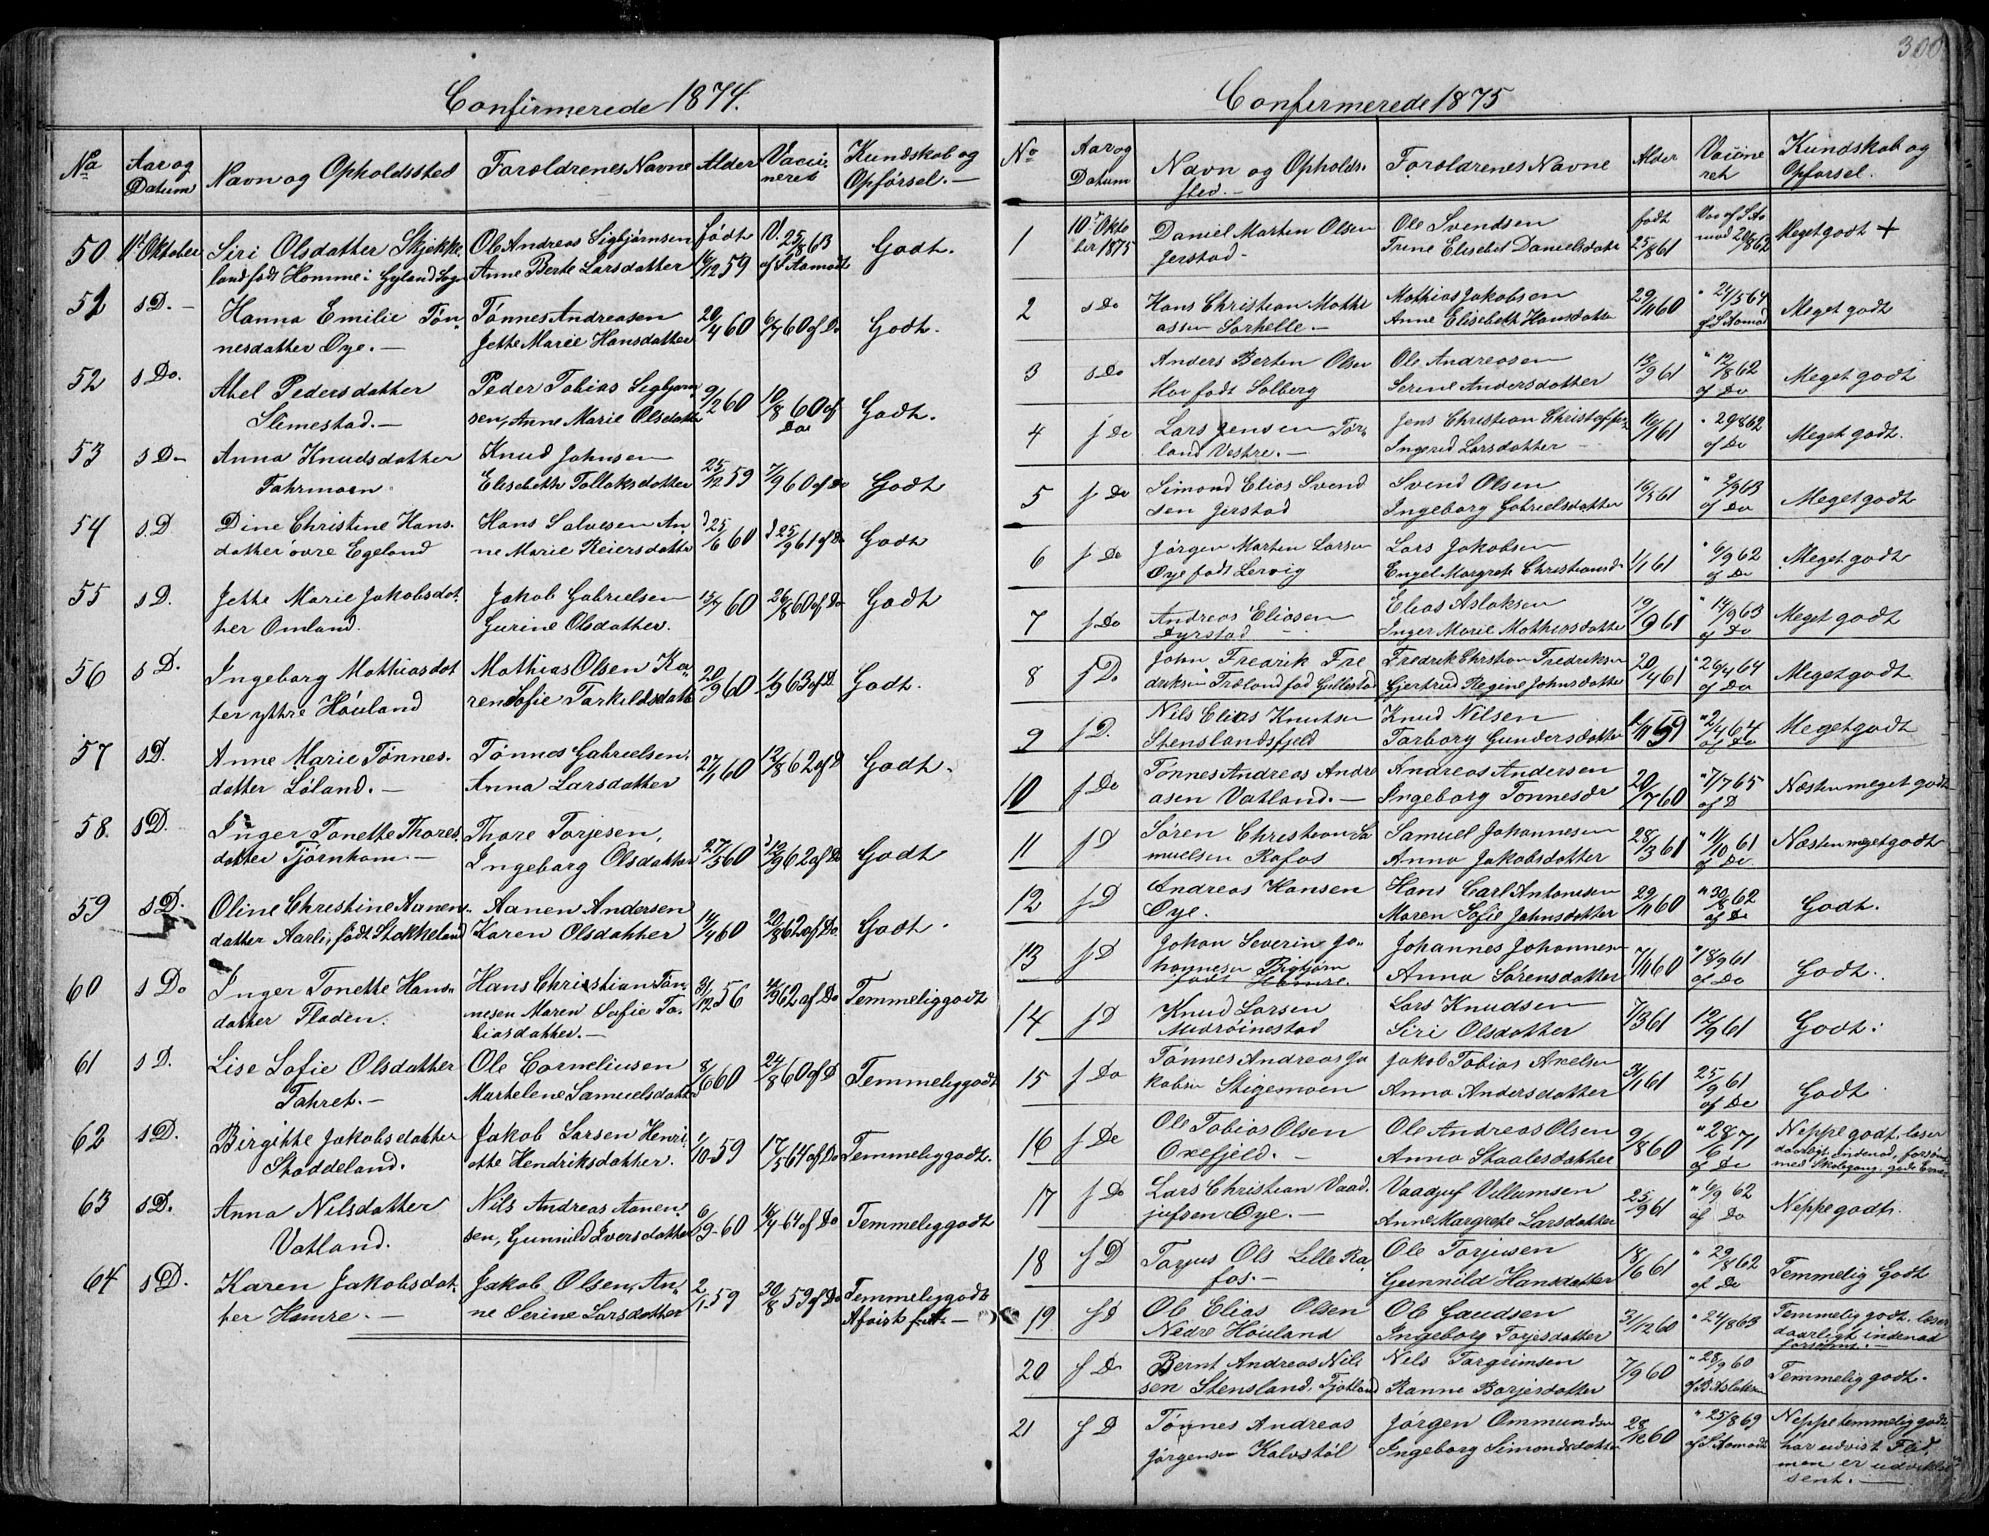 300
Confirmerede 1874.
No
Aar og Datum
Navn og Opholdssted
Forældrenes Navne
Alder
Vacineret
Kundskab og Opførsel.
50 1ste Oktober Siri Olsdatter Skjekke- Ole Andreas Sigbjørnsen født V. 25/8 63 Godt.
land født Homme i Gyland Sogn Anne Berte Larsdatter 16/12 59 af S Aamodt
51 s D. Hanna Emilie Tøn- Tønnes Andreasen 20/4 60 6/7 60 af Do Godt.
nesdatter Øye. Jette Marie Hansdatter
52 s Do. Abel Pedersdatter Peder Tobias Sigbjørn- 9/2 60 10/8 60 af Do Godt.
Slimestad. sen, Anne Marie Olsdatter
53 s D Anna Knudsdatter Knud Johnsen 25/12 59 7/9 60 af Do Godt
Fahrmoen. Elisebeth Tollaksdatter
54 s.D. Dine Christine Hans- Hans Salvesen An- 25/6 60 25/9 61 af Do Godt
datter øvre Egeland ne Marie Reiersdatter
55 s D. Jette Marie Jakobsdat- Jakob Gabrielsen 15/7 60 26/8 60 af Do Godt
ter Omland. Gurine Olsdatter.
56 s D. Ingeborg Mathiasdat Mathias Olsen Ka- 20/9 60 1/9 63 af D. Godt.
ter yttre Høuland ren Sofie Tarkildsdatter
57 s D. Anne Marie Tønnes- Tønnes Gabrielsen, 27/1 60 12/8 62 af D Godt.
datter Løland. Anna Larsdatter
58. s D. Inger Tonette Thores- Thore Torjesen, 27/5 60 12/9 62 af Do Godt
datter Tjørnhom. Ingeborg Olsdatter
59 s D. Oline Christine Aanens- Aanen Andersen 14/4 60 20/8 62 af Do. Godt.
datter Aarli, født Stokkeland Karen Olsdatter
60 s Do Inger Tonette Hans- Hans Christian Tøn- 31/12 56 62 af Do Temmelig godt
datter Fladen. nesen Maren Sofie To-
biasdatter.
61 s D. Lise Sofie Olsdatter Ole Corneliusen 8/6 60 24/8 60 af D Temmelig godt
Fahret. Marthelene Samuelsdatter
62 s D. Birgitte Jakobsdatter Jakob Larsen Henri- 1/10 59 17/5 64 af Do Temmelig godt.
Staddeland. ette Hendriksdatter.
63 s D. Anna Nilsdatter Nils Andreas Aanen- 6/9 60 64 af Do Temmelig godt
Vatland. sen, Gunnild Iversdatter
64 s D. Karen Jakobsdat- Jakob Olsen, An- 2/1 59 30/8 59 af Do Temmelig godt
ter Hamre. ne Serine Larsdatter
Confirmerede 1875
No
Aar og Datum
Navn og Opholds- sted.
Forældrenes Navne
Alder
Vacineret
Kundskab og Opførsel.
1 10de Oktober 1875 Daniel Martin Olsen Ole Svendsen født 25/8 61 Vac af S Aamod 28/8 62 Meget godt +
Jerstad Trine Elisebet Danielsdatter
2 s Do Hans Christian Mathi- Mathias Jakobsen 29/11 60 24/5 64 Meget godt
assen Sørhelle. Anne Elisebeth Hansdatter af S Aamod
3 s Do Anders Berten Olsen Ole Andreasen 13/9 61 12/8 62 Meget godt
Hoe født Solberg Serine Andersdatter af Do
4 f Do Lars Jensen Tør- Jens Christian Christoffers 10/1 61 29/8 62 Meget godt.
land Vestre. Ingerid Larsdatter af Do
5 f Do Simond Elias Svend Svend Olsen 16/5 61 2/9 63 Meget godt
sen Jerstad Ingeborg Gabrielsdatter af Do
6 f Do Jørgen Martin Larsen Lars Jakobsen 1/1 61 6/9 62 Meget godt
Øye født Lervig Engel Margrete Christiansd. af Do
7 f Do Andreas Eliasen Elias Aslaksen 19/9 61 14/9 63 Meget godt
Dyrstad Inger Marie Mathiasdatter af Do
8 f Do John Fredrik Fre Fredrik Christian Fredriksen 20/4 61 26/4 64 Meget godt
driksen Træland fød Gullestad Gjertrud Regine Johnsdatter af Do
9 f D. Nils Elias Knutsen Knud Nilsen 59 2/4 64 Meget godt
Stenslandsfjeld Tarborg Gundersdatter af Do
10 f Do Tønnes Andreas Andre Andreas Andersen 20/7 60 7/7 65 Næsten meget godt
asen Vatland. Ingeborg Tønnesdr af D
11 f D Søren Christian Sa Samuel Johannesen 28/3 61 11/10 61 Næsten meget godt
muelsen Rafos Anna Jakobsdatter af Do
12 f D Andreas Hansen Hans Carl Antonisen 29/11 60 30/8 62 Godt.
Øye. Maren Sofie Johnsdatter af Do
13 f D Johan Severin Jo- Johannes Johannes 7/11 60 18/9 61 Godt.
hannesen Bigbjørn Anna Sørensdatter af Do
født Hamre.
14 f D Knud Larsen Lars Knudsen 7/3 61 12/9 61 Godt.
Midrøinestad Siri Olsdatter
15 f Do Tønnes Andreas Ja Jakob Tobias Axelsen 31/1 61 25/9 61 Godt
kobsen Stigemoen Anna Andersdatter af Do
16 f Do Ole Tobias Olsen Ole Andreas Olsen 9/8 60 28/6 71 Neppe godt, læser
Oxefjeld. Anna Staalesdatter af Do daarligt indenad, forsømt
med Skolegang, gode Evner
17 f Do Lars Christian Vaad- Vaadjuf Villumsen 25/9 61 6/9 62 Neppe godt.
jufsen Øye. Anne Margrete Larsdatter af Do
18 f D Torjus Ols Lille Ra Ole Torjusen 18/6 61 29/8 62 Temmelig Godt
fos. Gunnild Hansdatter af Do
19 f D Ole Elias Olsen Ole Gaudsen 3/12 60 24/8 63 Temmelig godt, læser
Nedre Høuland Ingeborg Torjesdatter daarligt indenad
forsømt.
20 f Do Bernt Andreas Nil- Nils Targrimsen 7/9 60 28/9 60 Temmelig godt.
sen Stensland, Fjotland Ranne Borjesdatter af B Aslaksen
21 f D Tønnes Andreas Jørgen Ommundsen 28/12 60 25/8 69 Neppe temmelig godt
Jørgensen Kalvstøl Ingeborg Simondsdatter af S Aamodt har udvist Flid,
men er udviklet
sent.